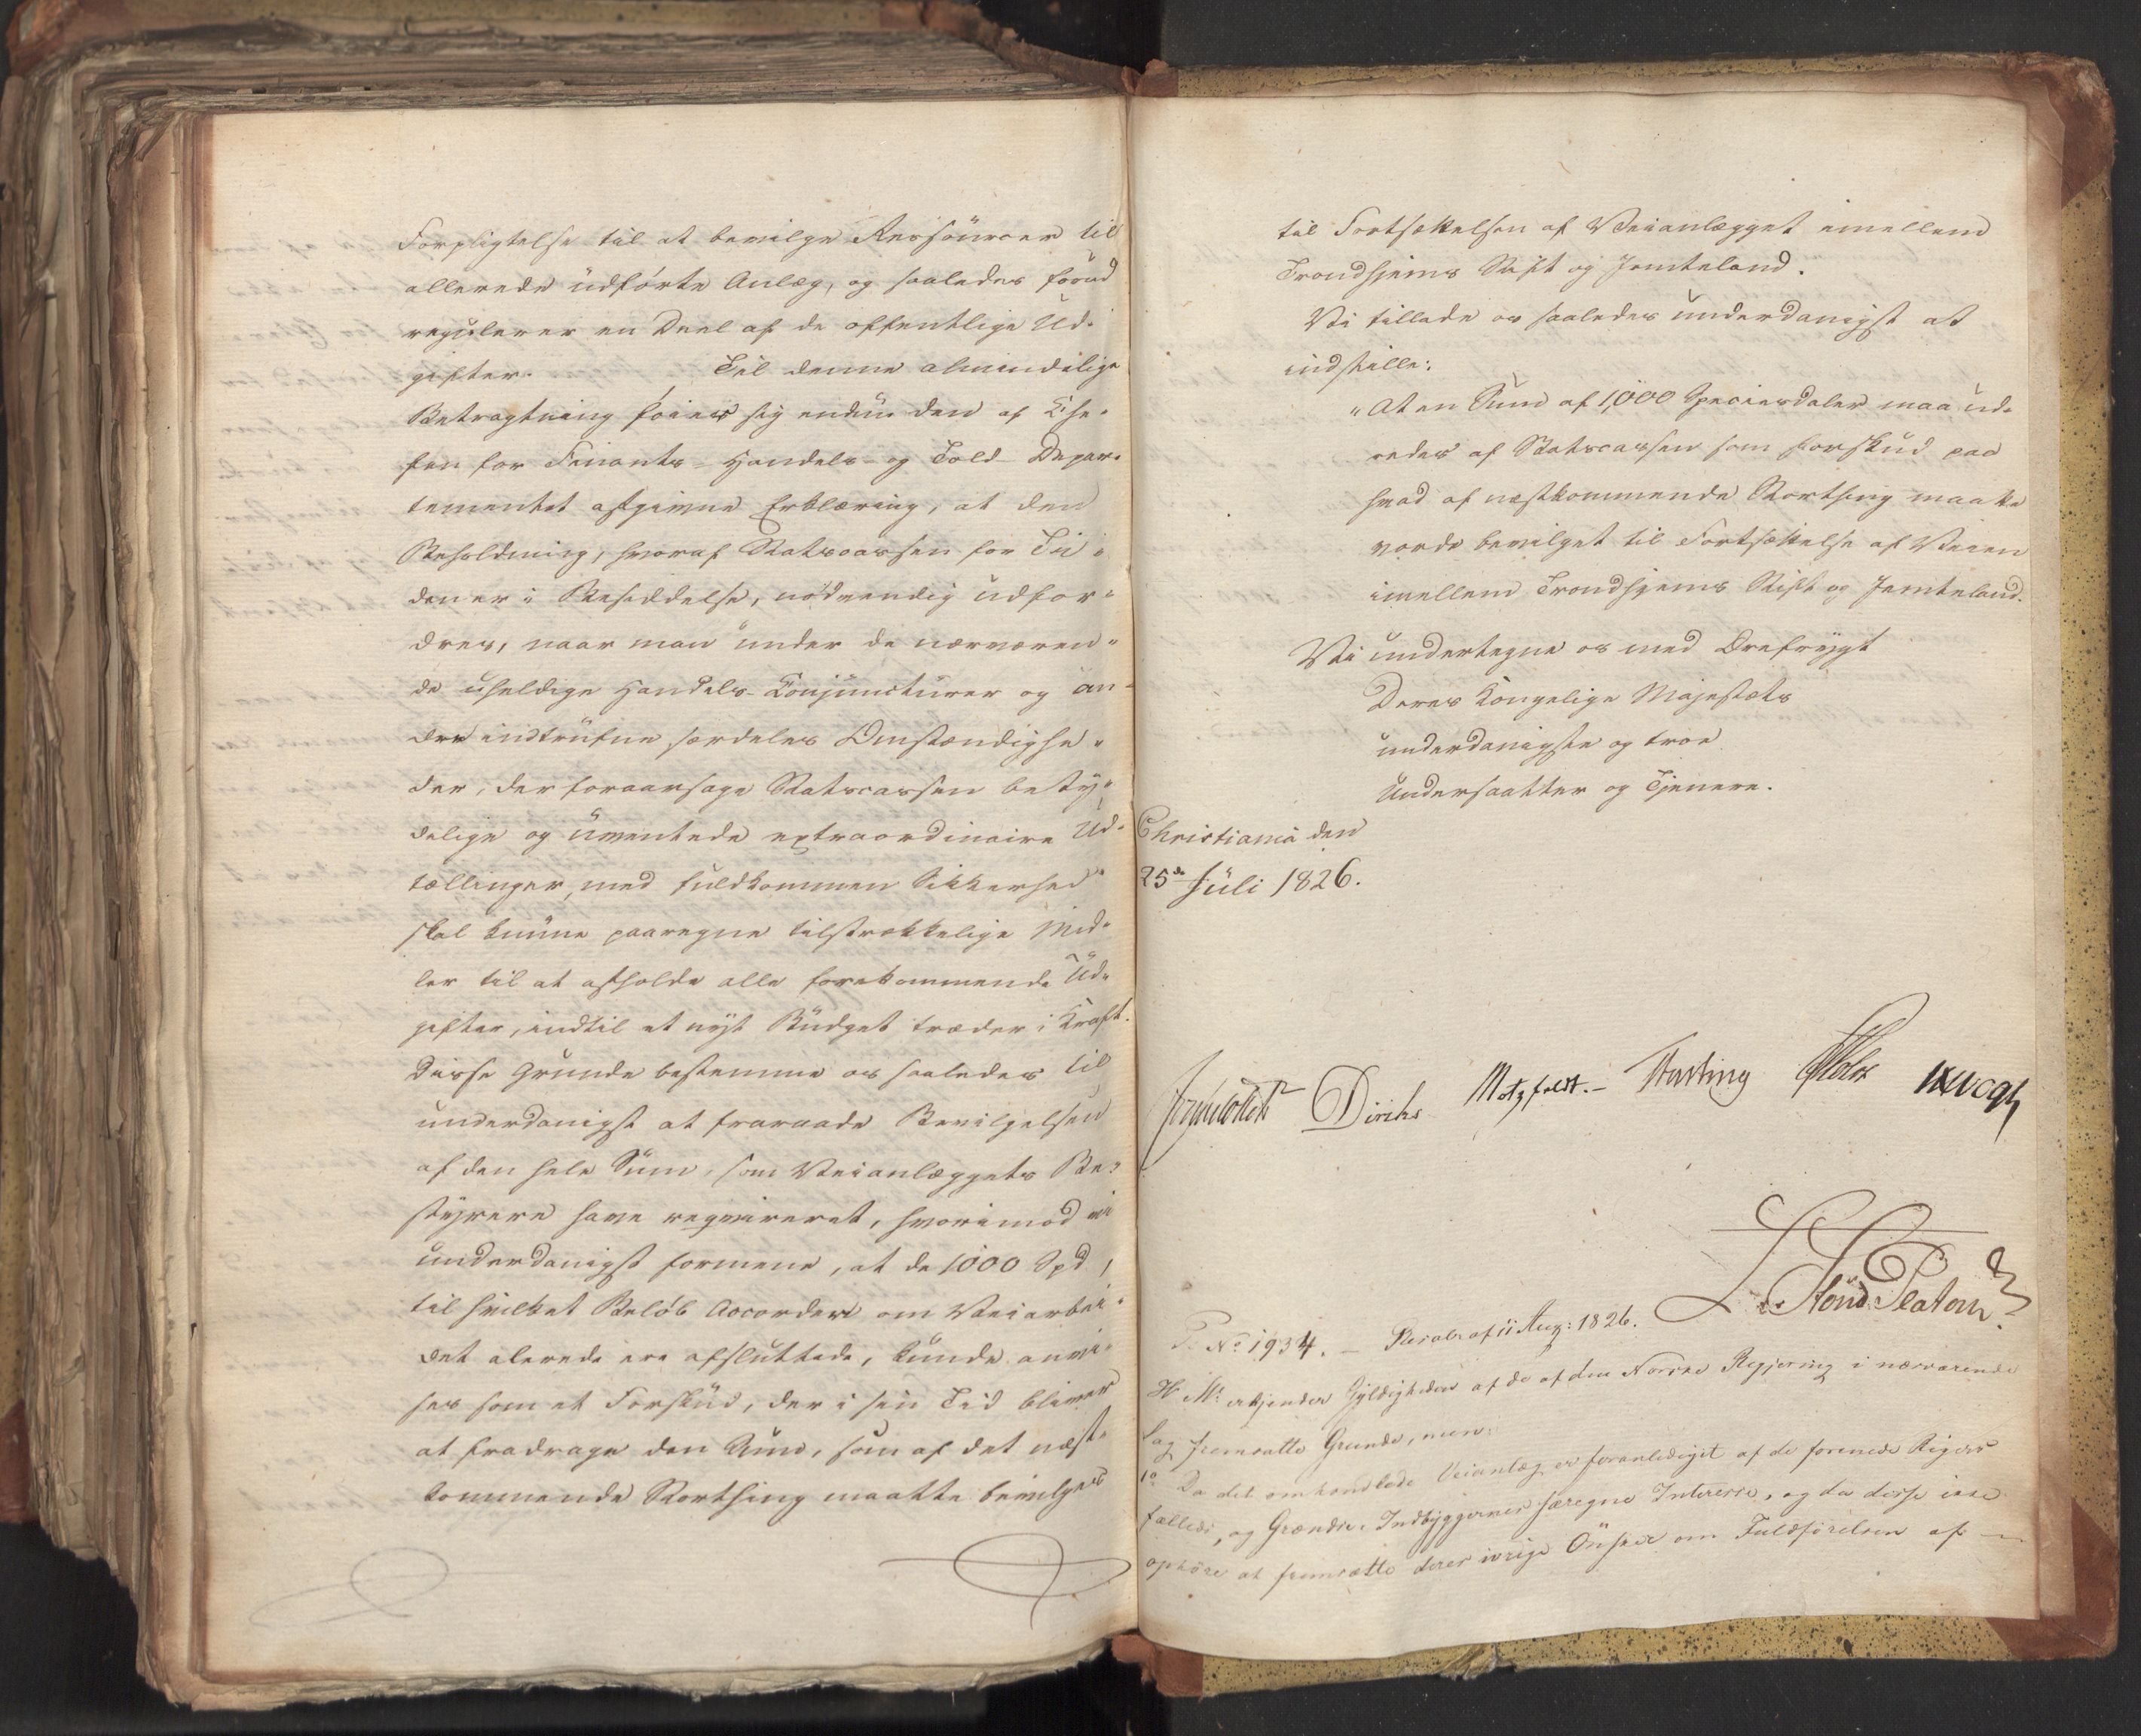 Forpligtelse til at bevilge Ressourcer til
allerede udførte Anlæg, og saaledes forud
regulerer en Deel af de offentlige Ud-
gifter. Til denne almindelige
Betragtning føier sig endnu den af Che-
fen for Finants- Handels- og Told Depar-
tementet afgivne Erklæring, at den
Beholdning, hvoraf Statscassen for Ti-
den er i Besiddelse, nødvendig udfor-
dres, naar man under de nærværen-
de uheldige Handels-Conjuncturer og an-
dre indtrufne særdeles Omstændighe-
der, der foraarsage Statscassen bety-
delige og uventede extraordinaire Ud-
tællinger, med fuldkommen Sikkerhed
skal kunne paaregne tilstrækkelige Mid-
ler til at afholde alle forekommende Ud-
gifter, indtil et nyt Budget træder i Kraft.
Disse Grunde bestemme os saaledes til
underdanigst at fraraade Bevilgelsen
af den hele Sum, som Veianlæggets Be-
styrere have reqvireret, hvorimod vi
underdanigst formene, at de 1000 Spd,
til hvilket Beløb Accorder om Veiarbei-
det alerede ere afsluttede, kunde anvi-
ses som et Forskud, der i sin Tid bliver
at fradrage den Sum, som af det næst-
kommende Storthing maatte bevilges
til Fortsættelsen af Veianlægget imellem
Trondhjems Stift og Jemteland.
Vi tillade os saaledes underdanigst at
indstille:
"At en Sum af 1,000 Speciesdaler maa ud-
redes af Statscassen som Forskud paa
hvad af næstkommende Storthing maatte
vorde bevilget til Fortsættelse af Veien
imellem Trondhjems Stift og Jemteland.
Vi undertegne os med Ærefrygt
Deres Kongelige Majestæts
underdanigste og troe
Undersaatter og Tjenere.
Christiania den
25de Juli 1826.
Diriks Motzfeldt.- Fasting Holst Vogt
Due
Schouw Platou
No 1934. - Resol: af 11 Aug: 1826.
H. M. erkjender Gyldigheden af de af den Norske Regjering i nærværende
Sag fremsatte Grunde, men:
1o Da det omhandlede Veianlæg er foranlediget af de forenede Rigers
fælleds, og Grændse-Indbyggernes særegne Interesse, og da disse ikke
ophöre at fremsætte deres ivrige Önsker om Fuldförelsen af